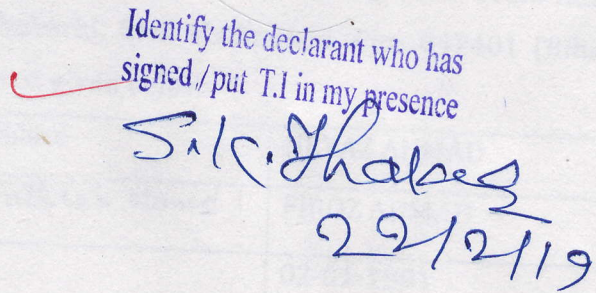 Identify the declarant who has
signed / put T.I in my presence
S.K. Thakur
22/2/19